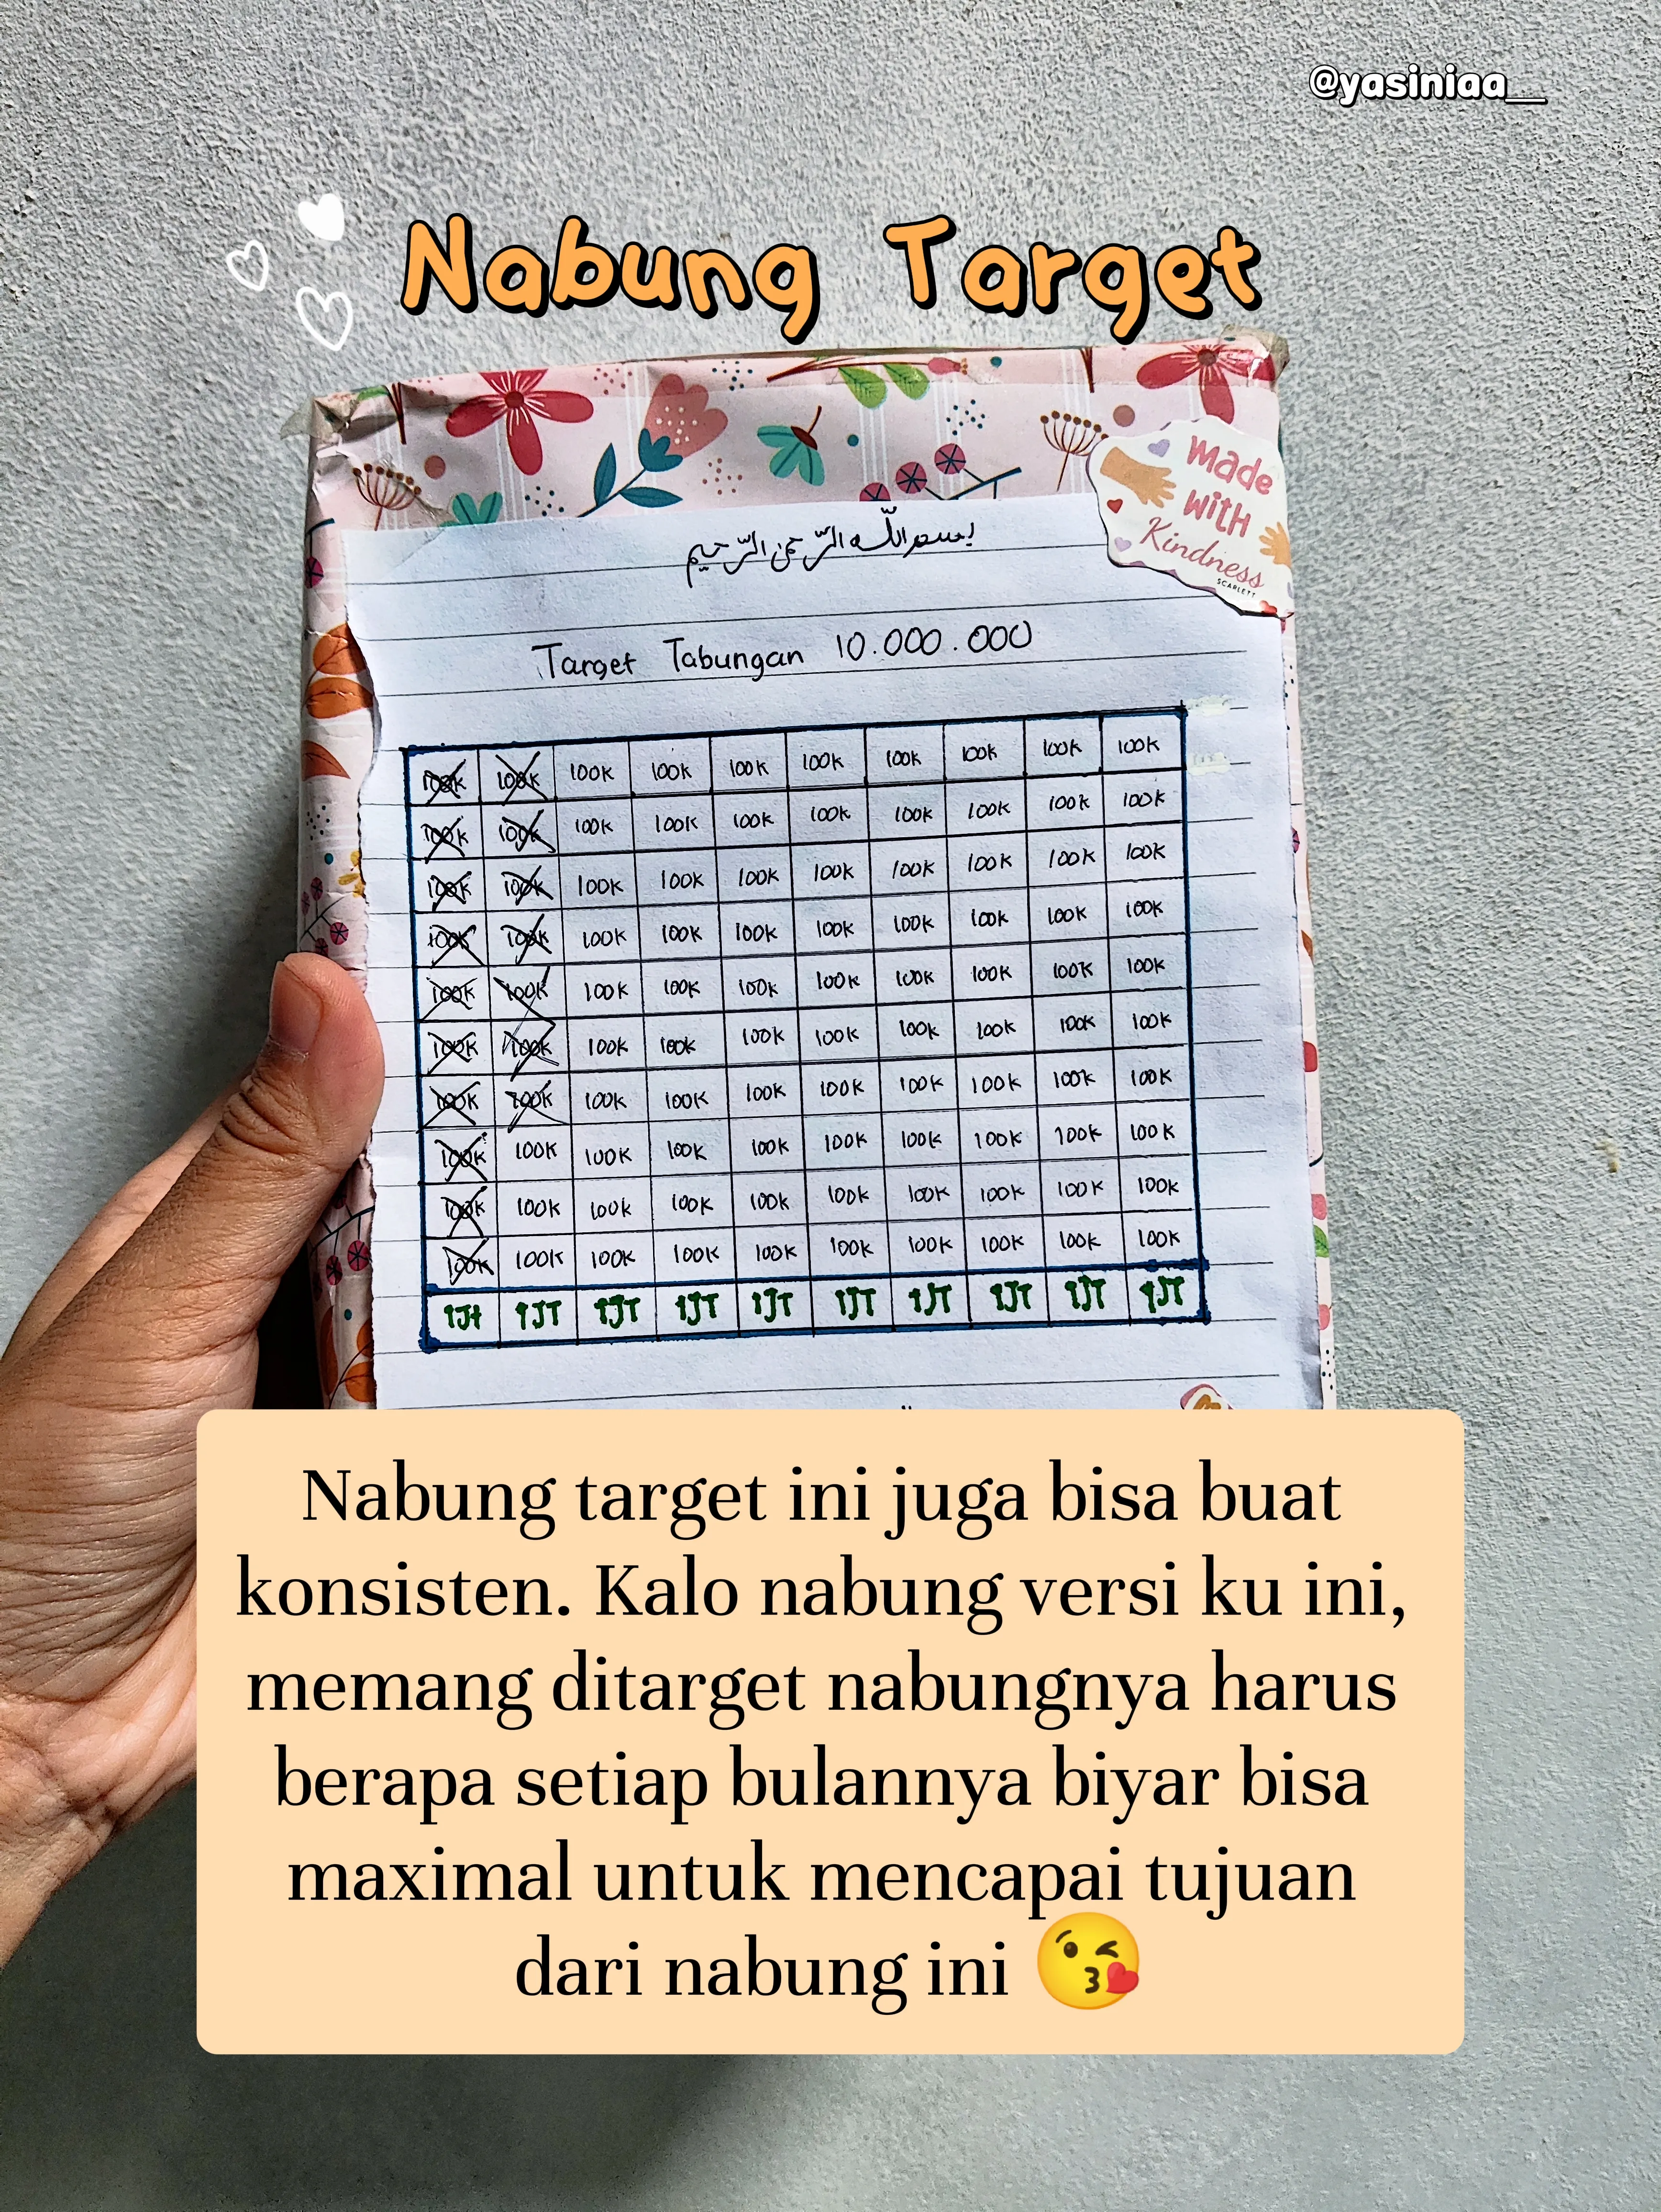 @yasiniaa__
Nabung Target
made
with
Kindness
SCARLETT
بسم الله الرّحمن الرّحيم
Target Tabungan 10.000.000
100K 100K 100K 100K 100K 100K 100K 100K 100K 100K
100K 100K 100K 100K 100K 100K 100K 100K 100K 100K
100K 100K 100K 100K 100K 100K 100K 100K 100K 100K
100K 100K 100K 100K 100K 100K 100K 100K 100K 100K
100K 100K 100K 100K 100K 100K 100K 100K 100K 100K
100K 100K 100K 100K 100K 100K 100K 100K 100K 100K
100K 100K 100K 100K 100K 100K 100K 100K 100K 100K
100K 100K 100K 100K 100K 100K 100K 100K 100K 100K
100K 100K 100K 100K 100K 100K 100K 100K 100K 100K
100K 100K 100K 100K 100K 100K 100K 100K 100K 100K
1Jt 1JT 1JT 1JT 1JT 1JT 1JT 1JT 1JT 1JT
Nabung target ini juga bisa buat
konsisten. Kalo nabung versi ku ini,
memang ditarget nabungnya harus
berapa setiap bulannya biyar bisa
maximal untuk mencapai tujuan
dari nabung ini 😘